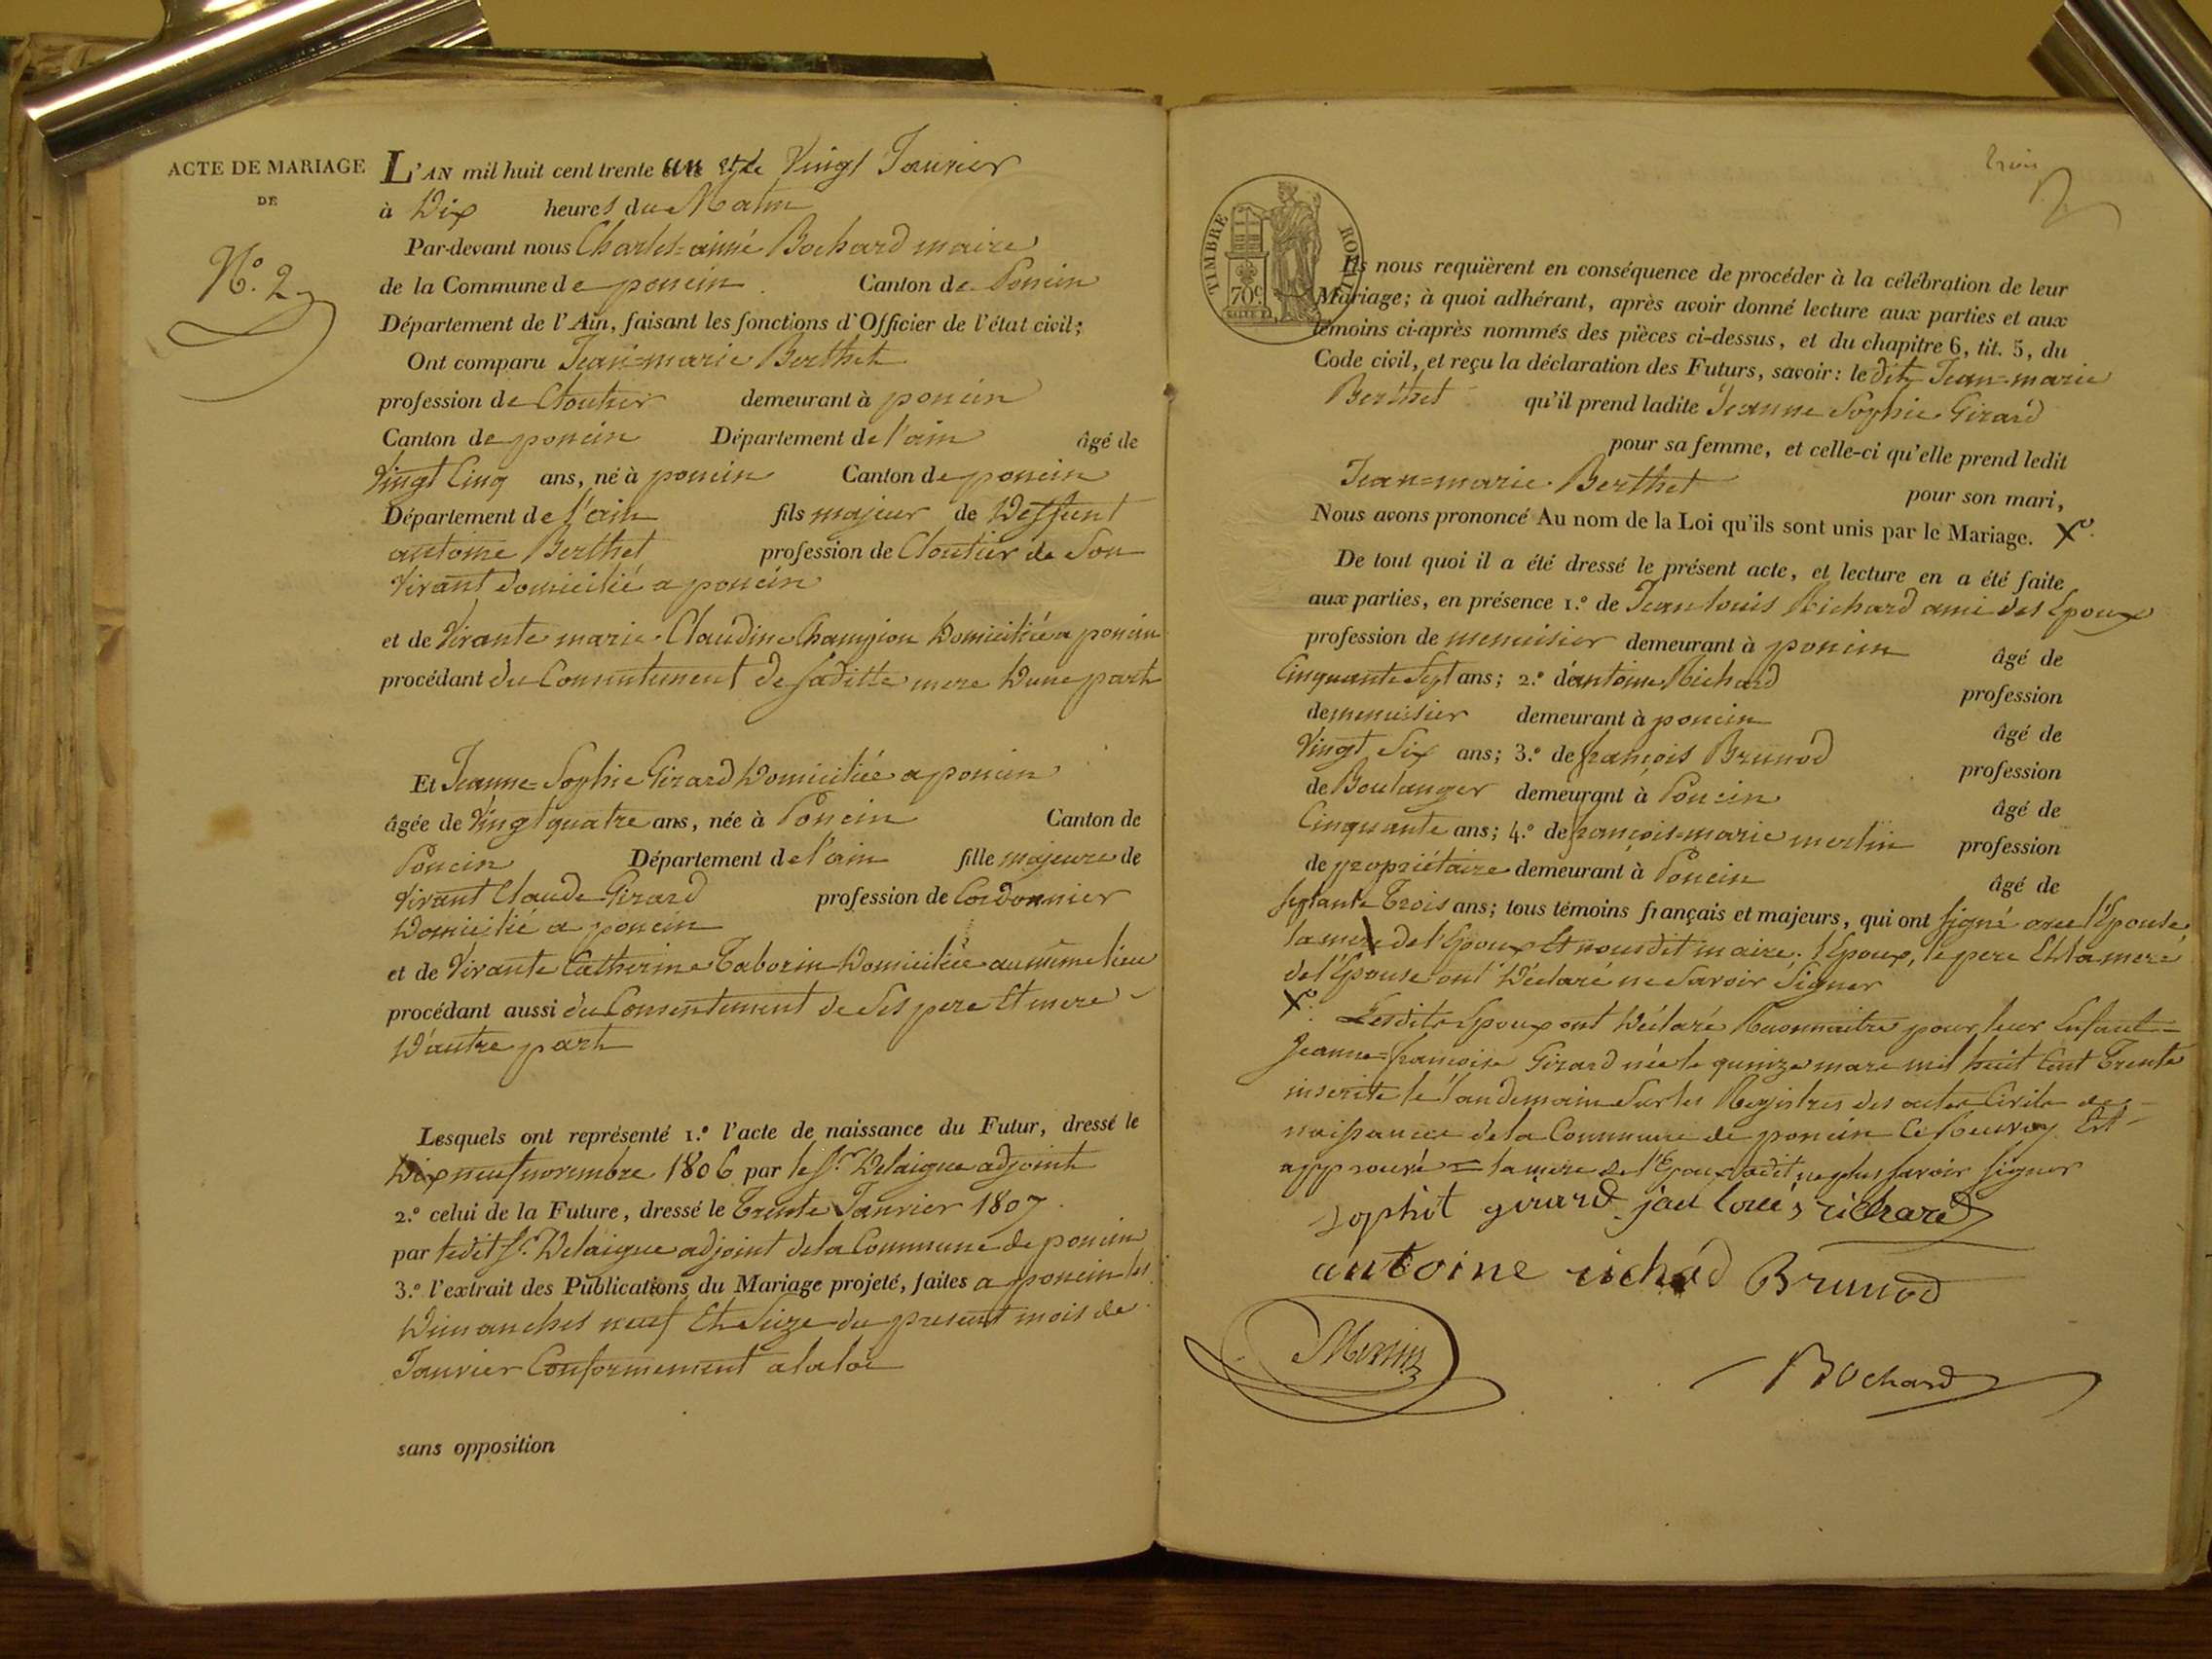 ACTE DE MARIAGE
DE
N.º 2
L'AN mil huit cent trente un et le Vingt Janvier
à Dix heures du Matin
Par-devant nous Charles=aimé Bochard maire
de la Commune de poncin Canton de Poncin
Département de l'Ain, faisant les fonctions d'Officier de l'état civil;
Ont comparu Jean=marie Berthet
profession de Cloutier demeurant à poncin
Canton de poncin Département de l'ain âgé de
Vingt Cinq ans, né à poncin Canton de poncin
Département de l'ain fils majeur de Deffunt
antoine Berthet profession de Cloutier de Son
Vivant domicilié a poncin
et de Vivante marie Claudine Champion Domiciliée a poncin
procédant du Consentement de Saditte mere Dune part
Et Jeanne=Sophie Girard Domiciliée a poncin
âgée de Vingt quatre ans, née à Poncin Canton de
Poncin Département de l'ain fille majeure de
Vivant Claude Girard profession de Cordonnier
Domicilié a poncin
et de Vivante Catherine Taborin Domiciliée au même lieu
procédant aussi du Consentement de Ses pere Et mere
D'autre part
Lesquels ont représenté 1.º l'acte de naissance du Futur, dressé le
Dix neuf novembre 1806 par le Sr. Delaigue adjoint
2.º celui de la Future, dressé le Trente Janvier 1807.
par ledit Sr. Delaigue adjoint dela Commune de poncin
3.º l'extrait des Publications du Mariage projeté, faites a poncin les
Dimanches neuf Et Seize du present mois de
Janvier Conformement a la loi
sans opposition
trois
TIMBRE ROYAL
70c
Ils nous requièrent en conséquence de procéder à la célébration de leur
Mariage; à quoi adhérant, après avoir donné lecture aux parties et aux
témoins ci-après nommés des pièces ci-dessus, et du chapitre 6, tit. 5, du
Code civil, et reçu la déclaration des Futurs, savoir: le dit Jean=marie
Berthet qu'il prend ladite Jeanne Sophie Girard
pour sa femme, et celle-ci qu'elle prend ledit
Jean=marie Berthet pour son mari,
Nous avons prononcé Au nom de la Loi qu'ils sont unis par le Mariage. X
De tout quoi il a été dressé le présent acte, et lecture en a été faite
aux parties, en présence 1.º de Jean louis Richard ami des Epoux
profession de menuisier demeurant à poncin âgé de
Cinquante Sept ans; 2.º d'antoine Richard profession
de menuisier demeurant à poncin âgé de
Vingt Six ans; 3.º de françois Brunod profession
de Boulanger demeurant à Poncin âgé de
Cinquante ans; 4.º de françois=marie merlin profession
de propriétaire demeurant à Poncin âgé de
Septante Trois ans; tous témoins français et majeurs, qui ont Signé avec l'Epouse
la mere de l'Epoux Et nous dit maire. l'Epoux, le pere Et la mere
de l'Epouse ont Déclaré ne Savoir Signer
X Lesdits Epoux ont Déclaré Reconnaitre pour leur Enfant=
Jeanne=françoise Girard née le quinze mars mil huit Cent Trente
inscrite le landemain Sur les Registres des actes Civils de
naissance de la Commune de poncin Ce Renvoy Est
approuvé = la mere de l'Epoux a dit ne plus savoir signer
sophit girard jan louis richard
antoine richad Brunod
Bochard